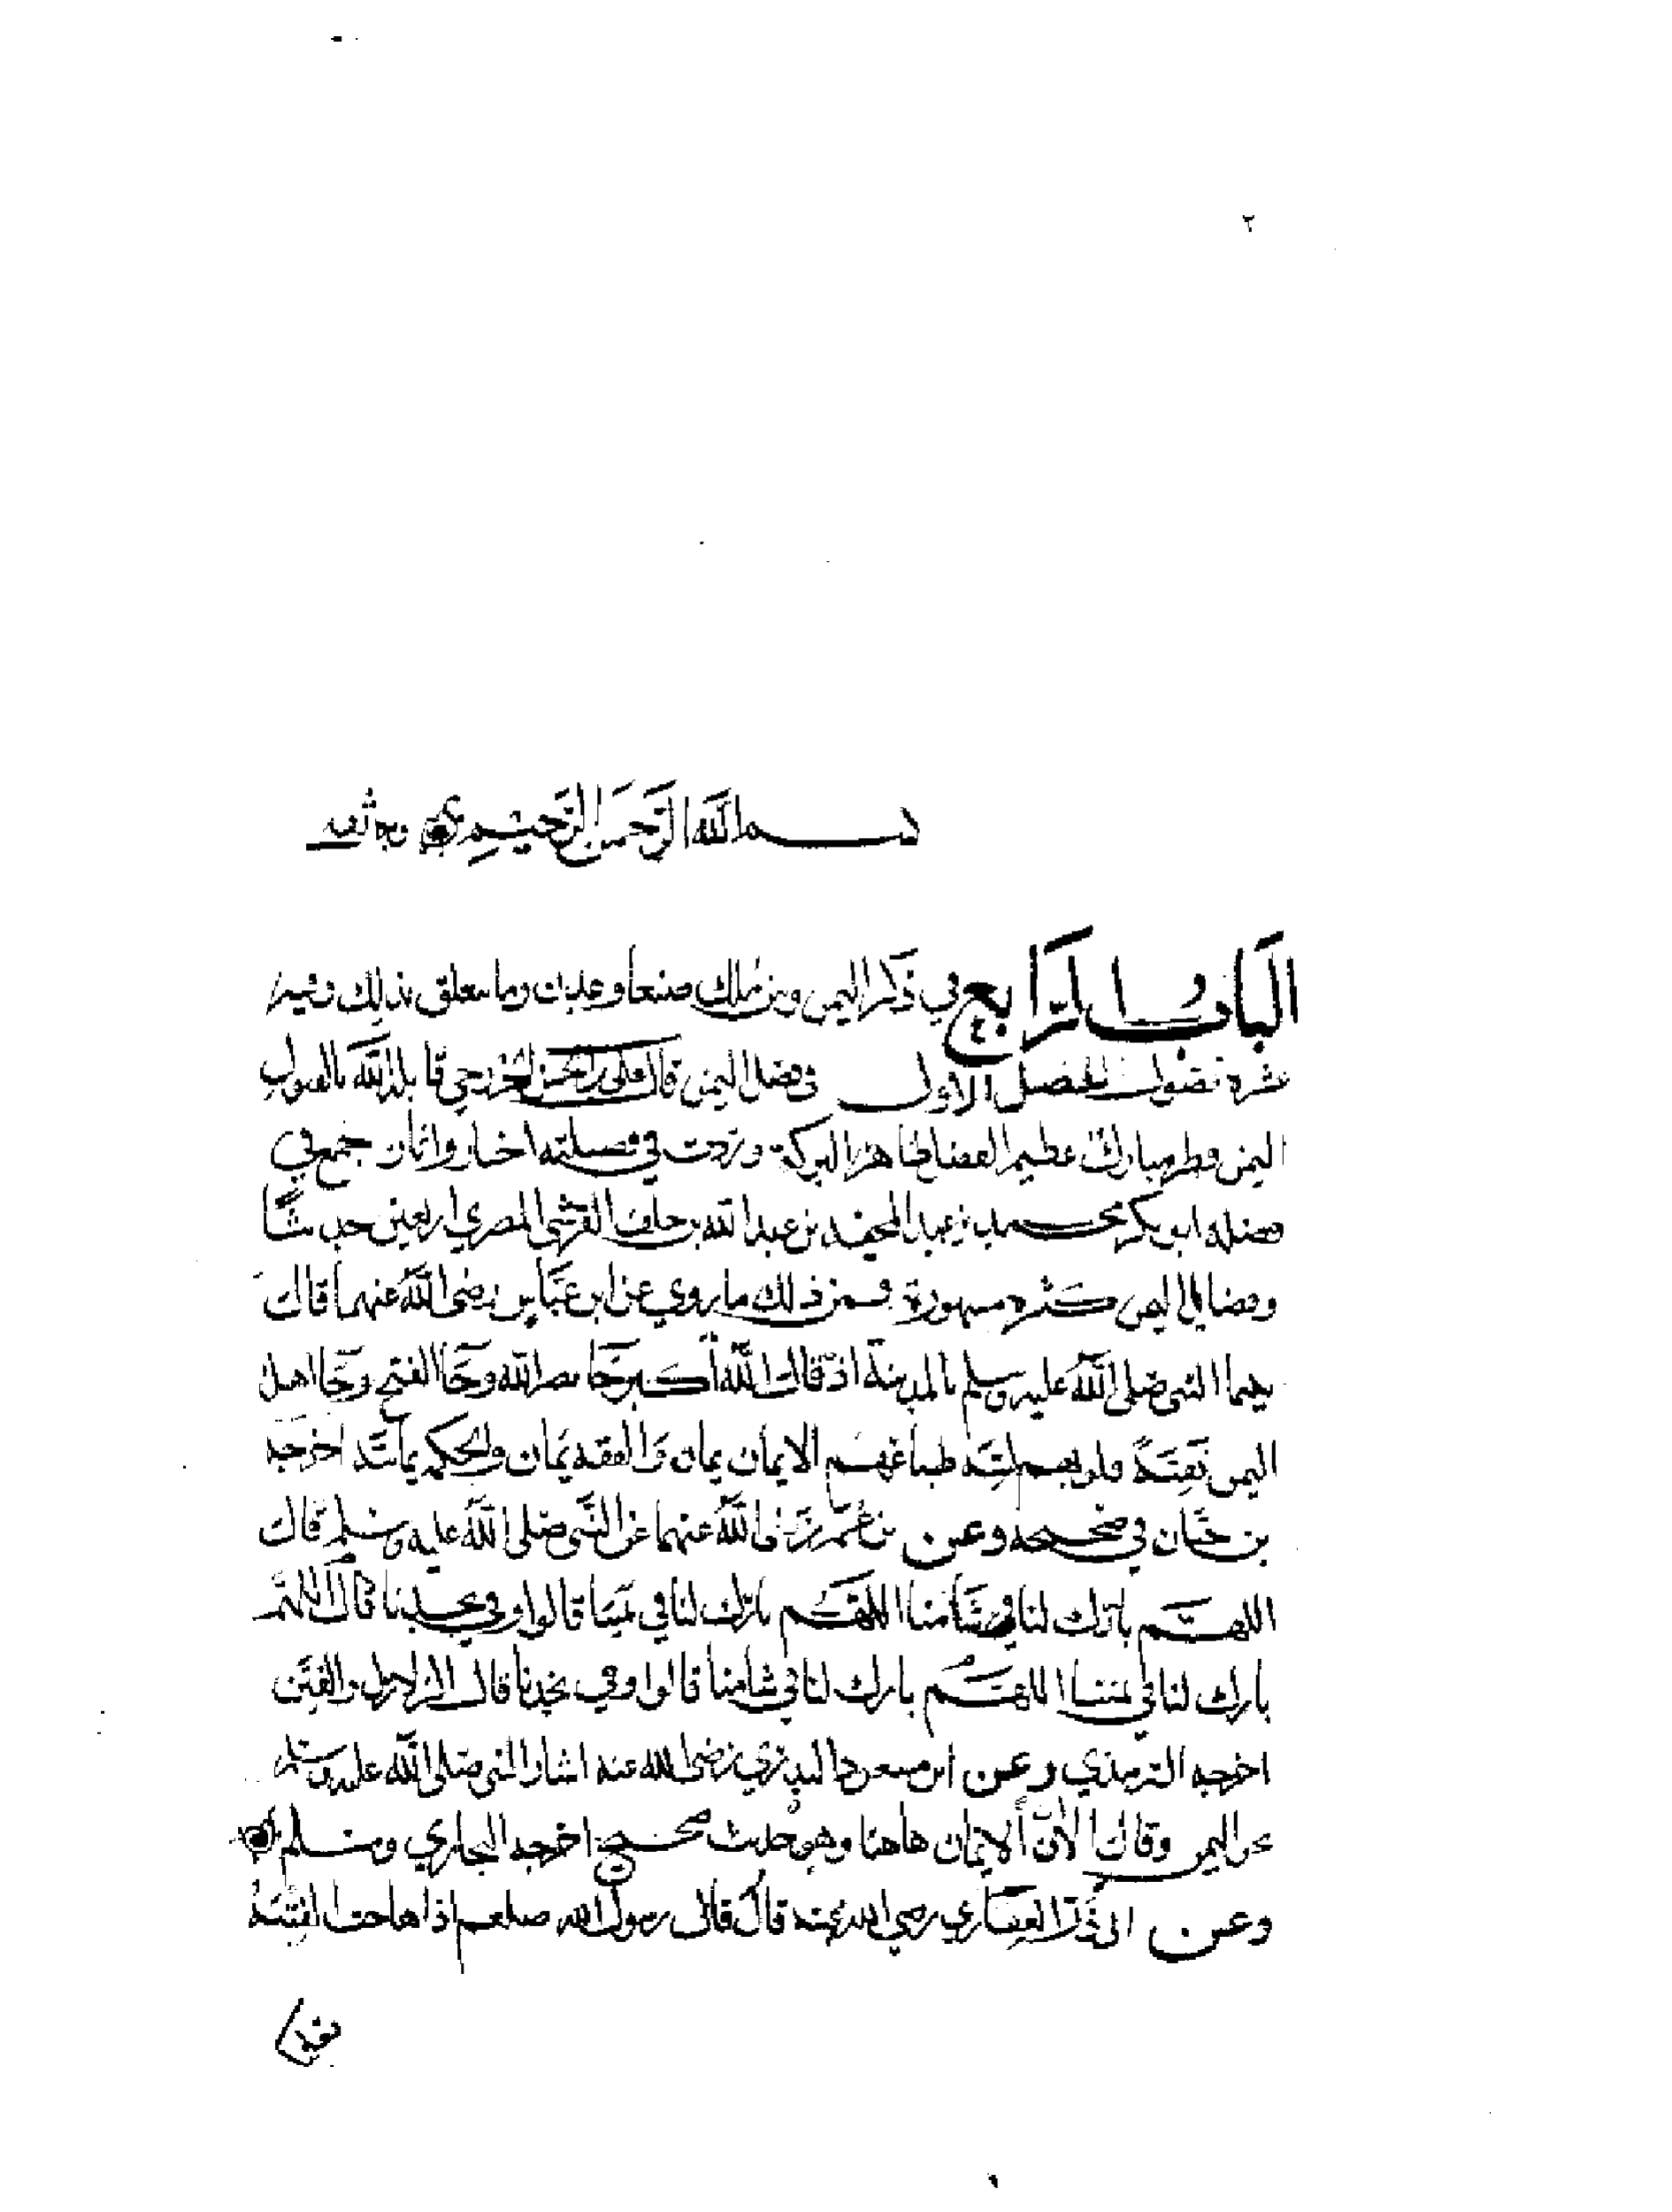 ٢
بسم الله الرحمن الرحيم وبه ثقتي
الباب الرابع في ذكر اليمن ومن ملك صنعا وعدن وما يتعلق بذلك وفيه
عشرة فصول الفصل الاول في فضل اليمن قال علي بن الحسن الخزرجي قابله الله بالقبول
اليمن قطر مبارك عظيم الفضل ظاهر البركة وردت في فضيلته اخبار واثار جمع في
فضله ابو بكر محمد بن عبد الحميد بن عبد الله بن خلف القرشي المصري اربعين حديثا
وفضايل اليمن كثيره مشهورة فمن ذلك ما روي عن ابن عباس رضي الله عنهما قال
بينما النبي صلى الله عليه وسلم بالمدينة اذ قال الله أكبر جا نصر الله وجا الفتح وجا اهل
اليمن نقية قلوبهم لينة طباعهم الايمان يمان والفقه يمان والحكمه يمانية اخرجه
بن حبان في صحيحه وعن بن عمر رضي الله عنهما عن النبي صلى الله عليه وسلم قال
اللهم بارك لنا في شامنا اللهم بارك لنا في يمننا قالوا وفي نجدنا قال اللهم
بارك لنا في يمننا اللهم بارك لنا في شامنا قالوا وفي نجدنا قال الزلازل والفتن
اخرجه الترمذي وعن ابن مسعود البدري رضي الله عنه اشار النبي صلى الله عليه وسلم
نحو اليمن وقال الا ان الايمان هاهنا وهو حديث صحيح اخرجه البخاري ومسلم
وعن ابي ذر الغفاري رضي الله عنه قال قال رسول الله صلعم اذا هاجت الفتنة
١